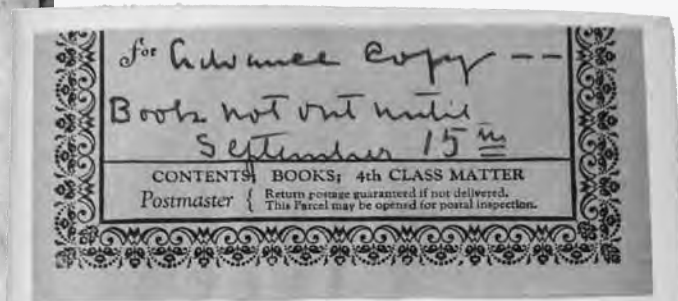 for Advance Copy --
Book not out until
September 15th
CONTENTS; BOOKS; 4th CLASS MATTER
Postmaster { Return postage guaranteed if not delivered.
This Parcel may be opened for postal inspection.